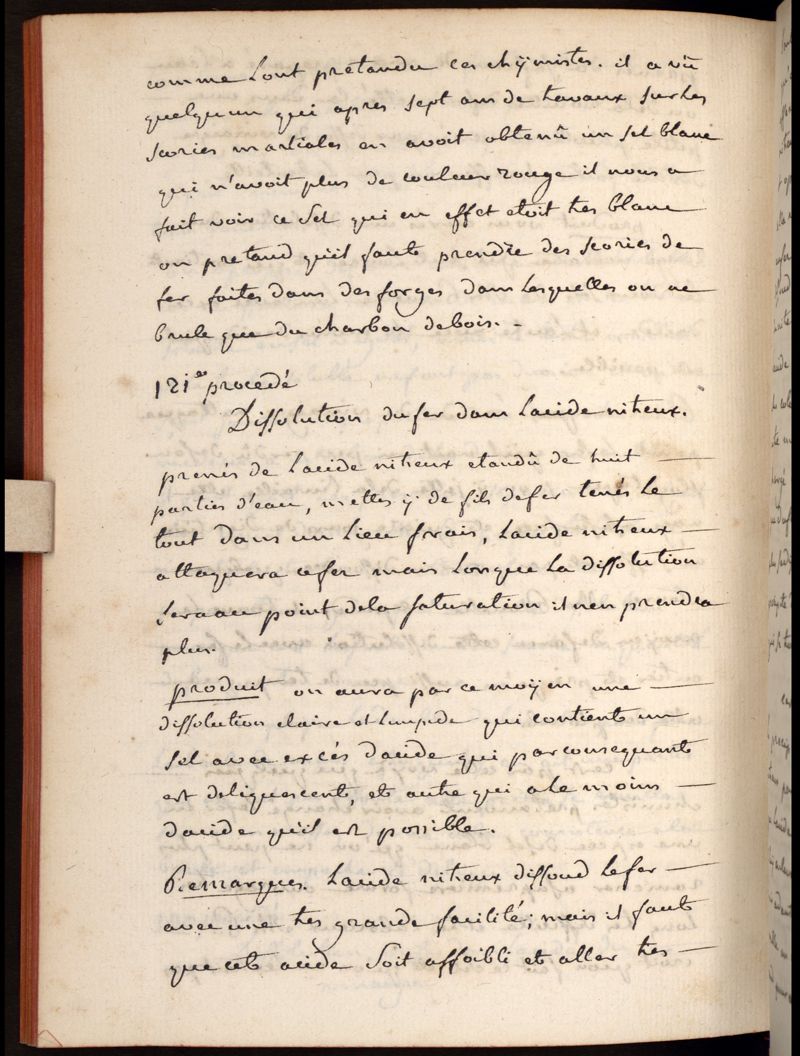 comme Lont pretandu ces chÿmistes. il a vû
quelqu'un qui apres sept ans de travaux sur les
scories martiales en avoit obtenû un sel blanc
qui n'avoit plus de couleur rouge il nous a
fait voir ce sel qui en effet etoit tres blanc
on pretand qu'il faute prendre des scories de
fer faites dans des forges dans lesquelles on ne
brule que du charbon de bois. -
121e procedé
Dissolution du fer dans Lacide nitreux.
prenés de Lacide nitreux etandû de huit —
parties d'eau, mettes ÿ de fils de fer tenés le
tout dans un Lieu frais, Lacide nitreux —
attaquera ce fer mais Lorsque La dissolution
sera au point de la saturation il n'en prendra
plus.
produit on aura par ce moÿen une —
dissolution claire et Limpide qui contient un
sel avec excés dacide qui par consequant
est deliquescent, et autre qui a le moins —
dacide qu'il est possible.
Remarques. Lacide nitreux dissoud le fer —
avec une tres grande facilité; mais il faut
que cet acide soit affoibli et aller tres —